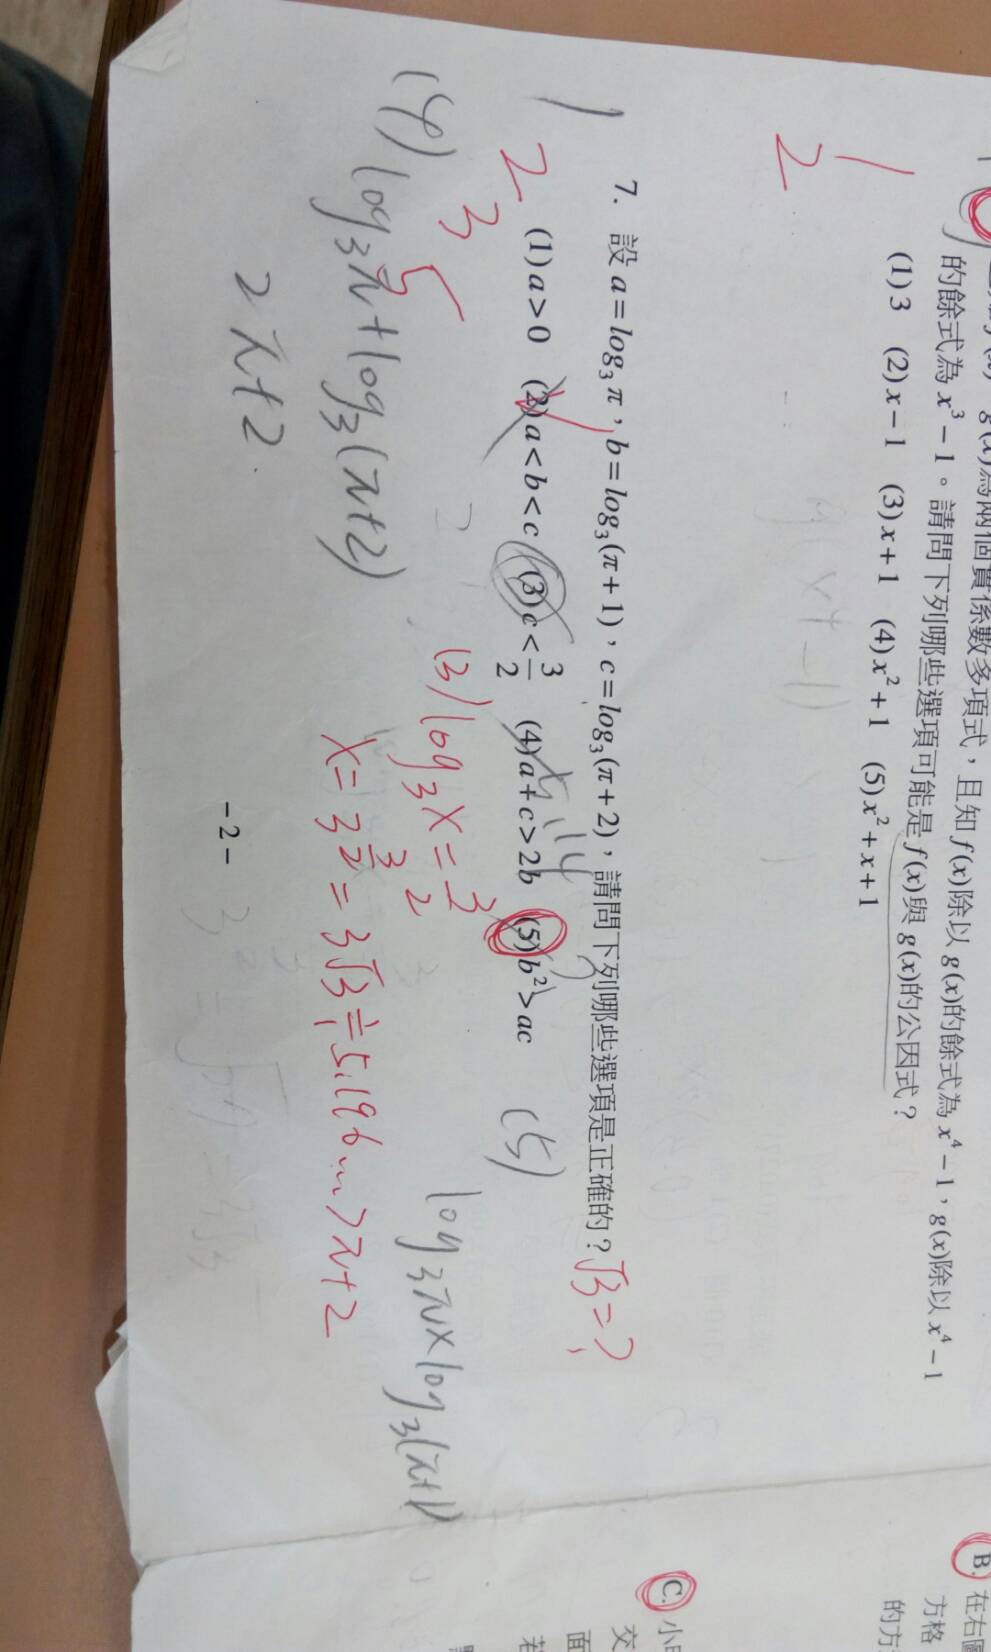 g(x)為兩個實係數多項式，且知f(x)除以g(x)的餘式為x⁴−1，g(x)除以x⁴−1
的餘式為x³−1。請問下列哪些選項可能是f(x)與g(x)的公因式？
(1)3 (2)x−1 (3)x+1 (4)x²+1 (5)x²+x+1
1
2
7. 設a=log₃π，b=log₃(π+1)，c=log₃(π+2)，請問下列哪些選項是正確的？
√3=?
(1)a>0 (2)a<b<c (3)c<3/2 (4)a+c>2b (5)b²>ac
1
2
3
5
(4) log₃π+log₃(π+2)
2π+2
(3) log₃x=3/2
x=3^(3/2)=3√3≑5.196...>π+2
(5)
log₃π×log₃(π+1)
-2-
B. 在右圖
方格
的方
C. 小
交
面
若